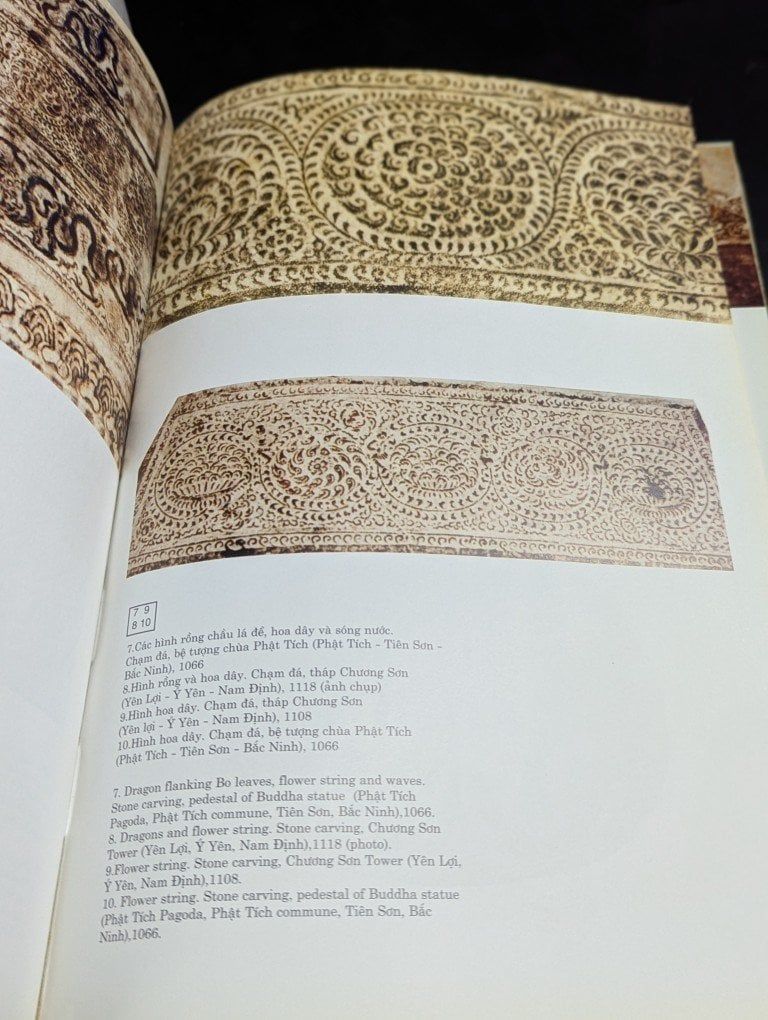 7 9
8 10
7.Các hình rồng chầu lá đề, hoa dây và sóng nước.
Chạm đá, bệ tượng chùa Phật Tích (Phật Tích - Tiên Sơn -
Bắc Ninh), 1066
8.Hình rồng và hoa dây. Chạm đá, tháp Chương Sơn
(Yên Lợi - Ý Yên - Nam Định), 1118 (ảnh chụp)
9.Hình hoa dây. Chạm đá, tháp Chương Sơn
(Yên lợi - Ý Yên - Nam Định), 1108
10.Hình hoa dây. Chạm đá, bệ tượng chùa Phật Tích
(Phật Tích - Tiên Sơn - Bắc Ninh), 1066
7. Dragon flanking Bo leaves, flower string and waves.
Stone carving, pedestal of Buddha statue (Phật Tích
Pagoda, Phật Tích commune, Tiên Sơn, Bắc Ninh),1066.
8. Dragons and flower string. Stone carving, Chương Sơn
Tower (Yên Lợi, Ý Yên, Nam Định),1118 (photo).
9.Flower string. Stone carving, Chương Sơn Tower (Yên Lợi,
Ý Yên, Nam Định),1108.
10. Flower string. Stone carving, pedestal of Buddha statue
(Phật Tích Pagoda, Phật Tích commune, Tiên Sơn, Bắc
Ninh),1066.